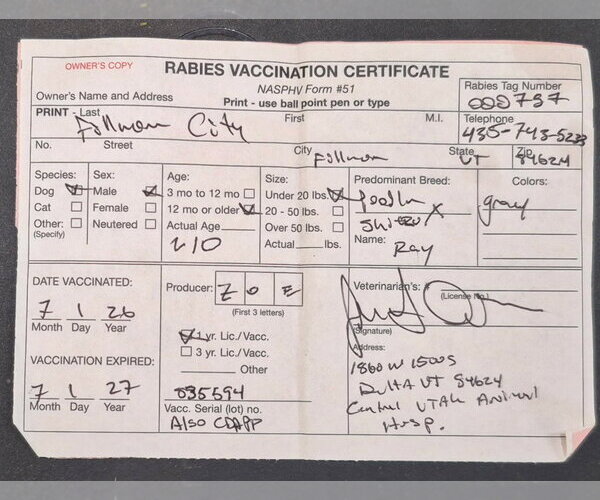 OWNER'S COPY
RABIES VACCINATION CERTIFICATE
NASPHV Form #51
Owner's Name and Address
Print - use ball point pen or type
Rabies Tag Number
000737
PRINT - Last First M.I. Telephone
Fillmore City 435-743-5233
No. Street City State Zip
Fillmore UT 84624
Species: Sex: Age: Size: Predominant Breed: Colors:
Dog Male 3 mo to 12 mo Under 20 lbs. Poodle gray
Cat Female 12 mo or older 20 - 50 lbs. Shitzu X
Other: Neutered Actual Age Over 50 lbs.
(Specify) Actual lbs. Name: Ray
10
DATE VACCINATED:
7 1 26
Month Day Year
VACCINATION EXPIRED:
7 1 27
Month Day Year
Producer: Z O E
(First 3 letters)
1 yr. Lic./Vacc.
3 yr. Lic./Vacc.
Other
835594
Vacc. Serial (lot) no.
Also CDAPP
Veterinarian's: #
(License No.)
(Signature)
Address:
1860 W 1500 S
Delta UT 84624
Central UTAH Animal
Hosp.